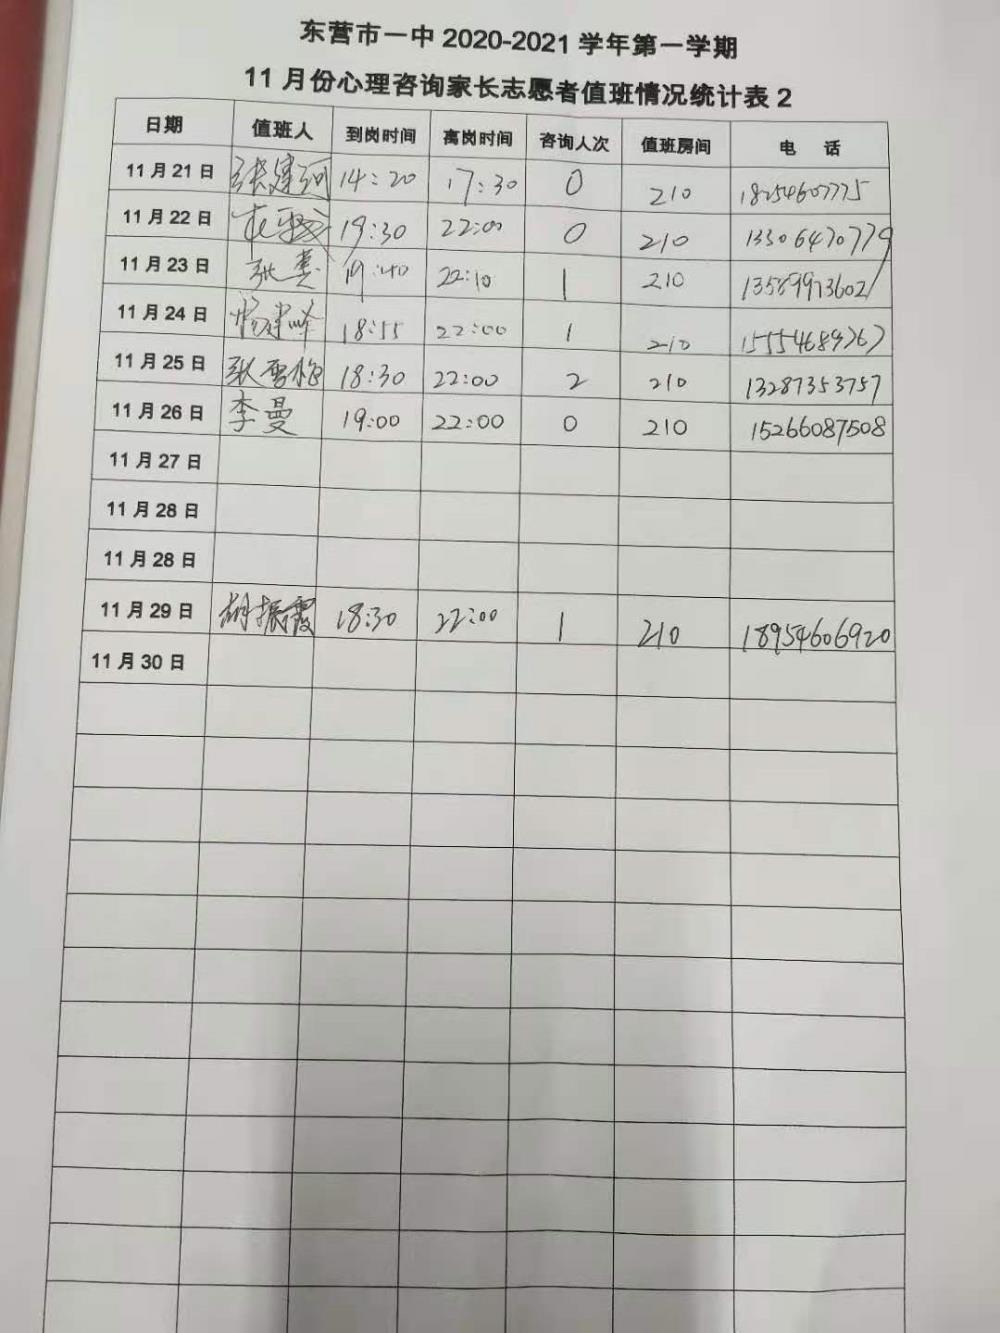 东营市一中 2020-2021 学年第一学期
11 月份心理咨询家长志愿者值班情况统计表 2
日期 值班人 到岗时间 离岗时间 咨询人次 值班房间 电 话
11 月 21 日 张建河 14:20 17:30 0 210 18254607775
11 月 22 日 19:30 22:00 0 210 13306470779
11 月 23 日 张 19:40 22:10 1 210 13589973602
11 月 24 日 杨建峰 18:55 22:00 1 210 15554689767
11 月 25 日 张雪梅 18:30 22:00 2 210 13287353757
11 月 26 日 李曼 19:00 22:00 0 210 15266087508
11 月 27 日
11 月 28 日
11 月 28 日
11 月 29 日 胡振霞 18:30 22:00 1 210 18954606920
11 月 30 日